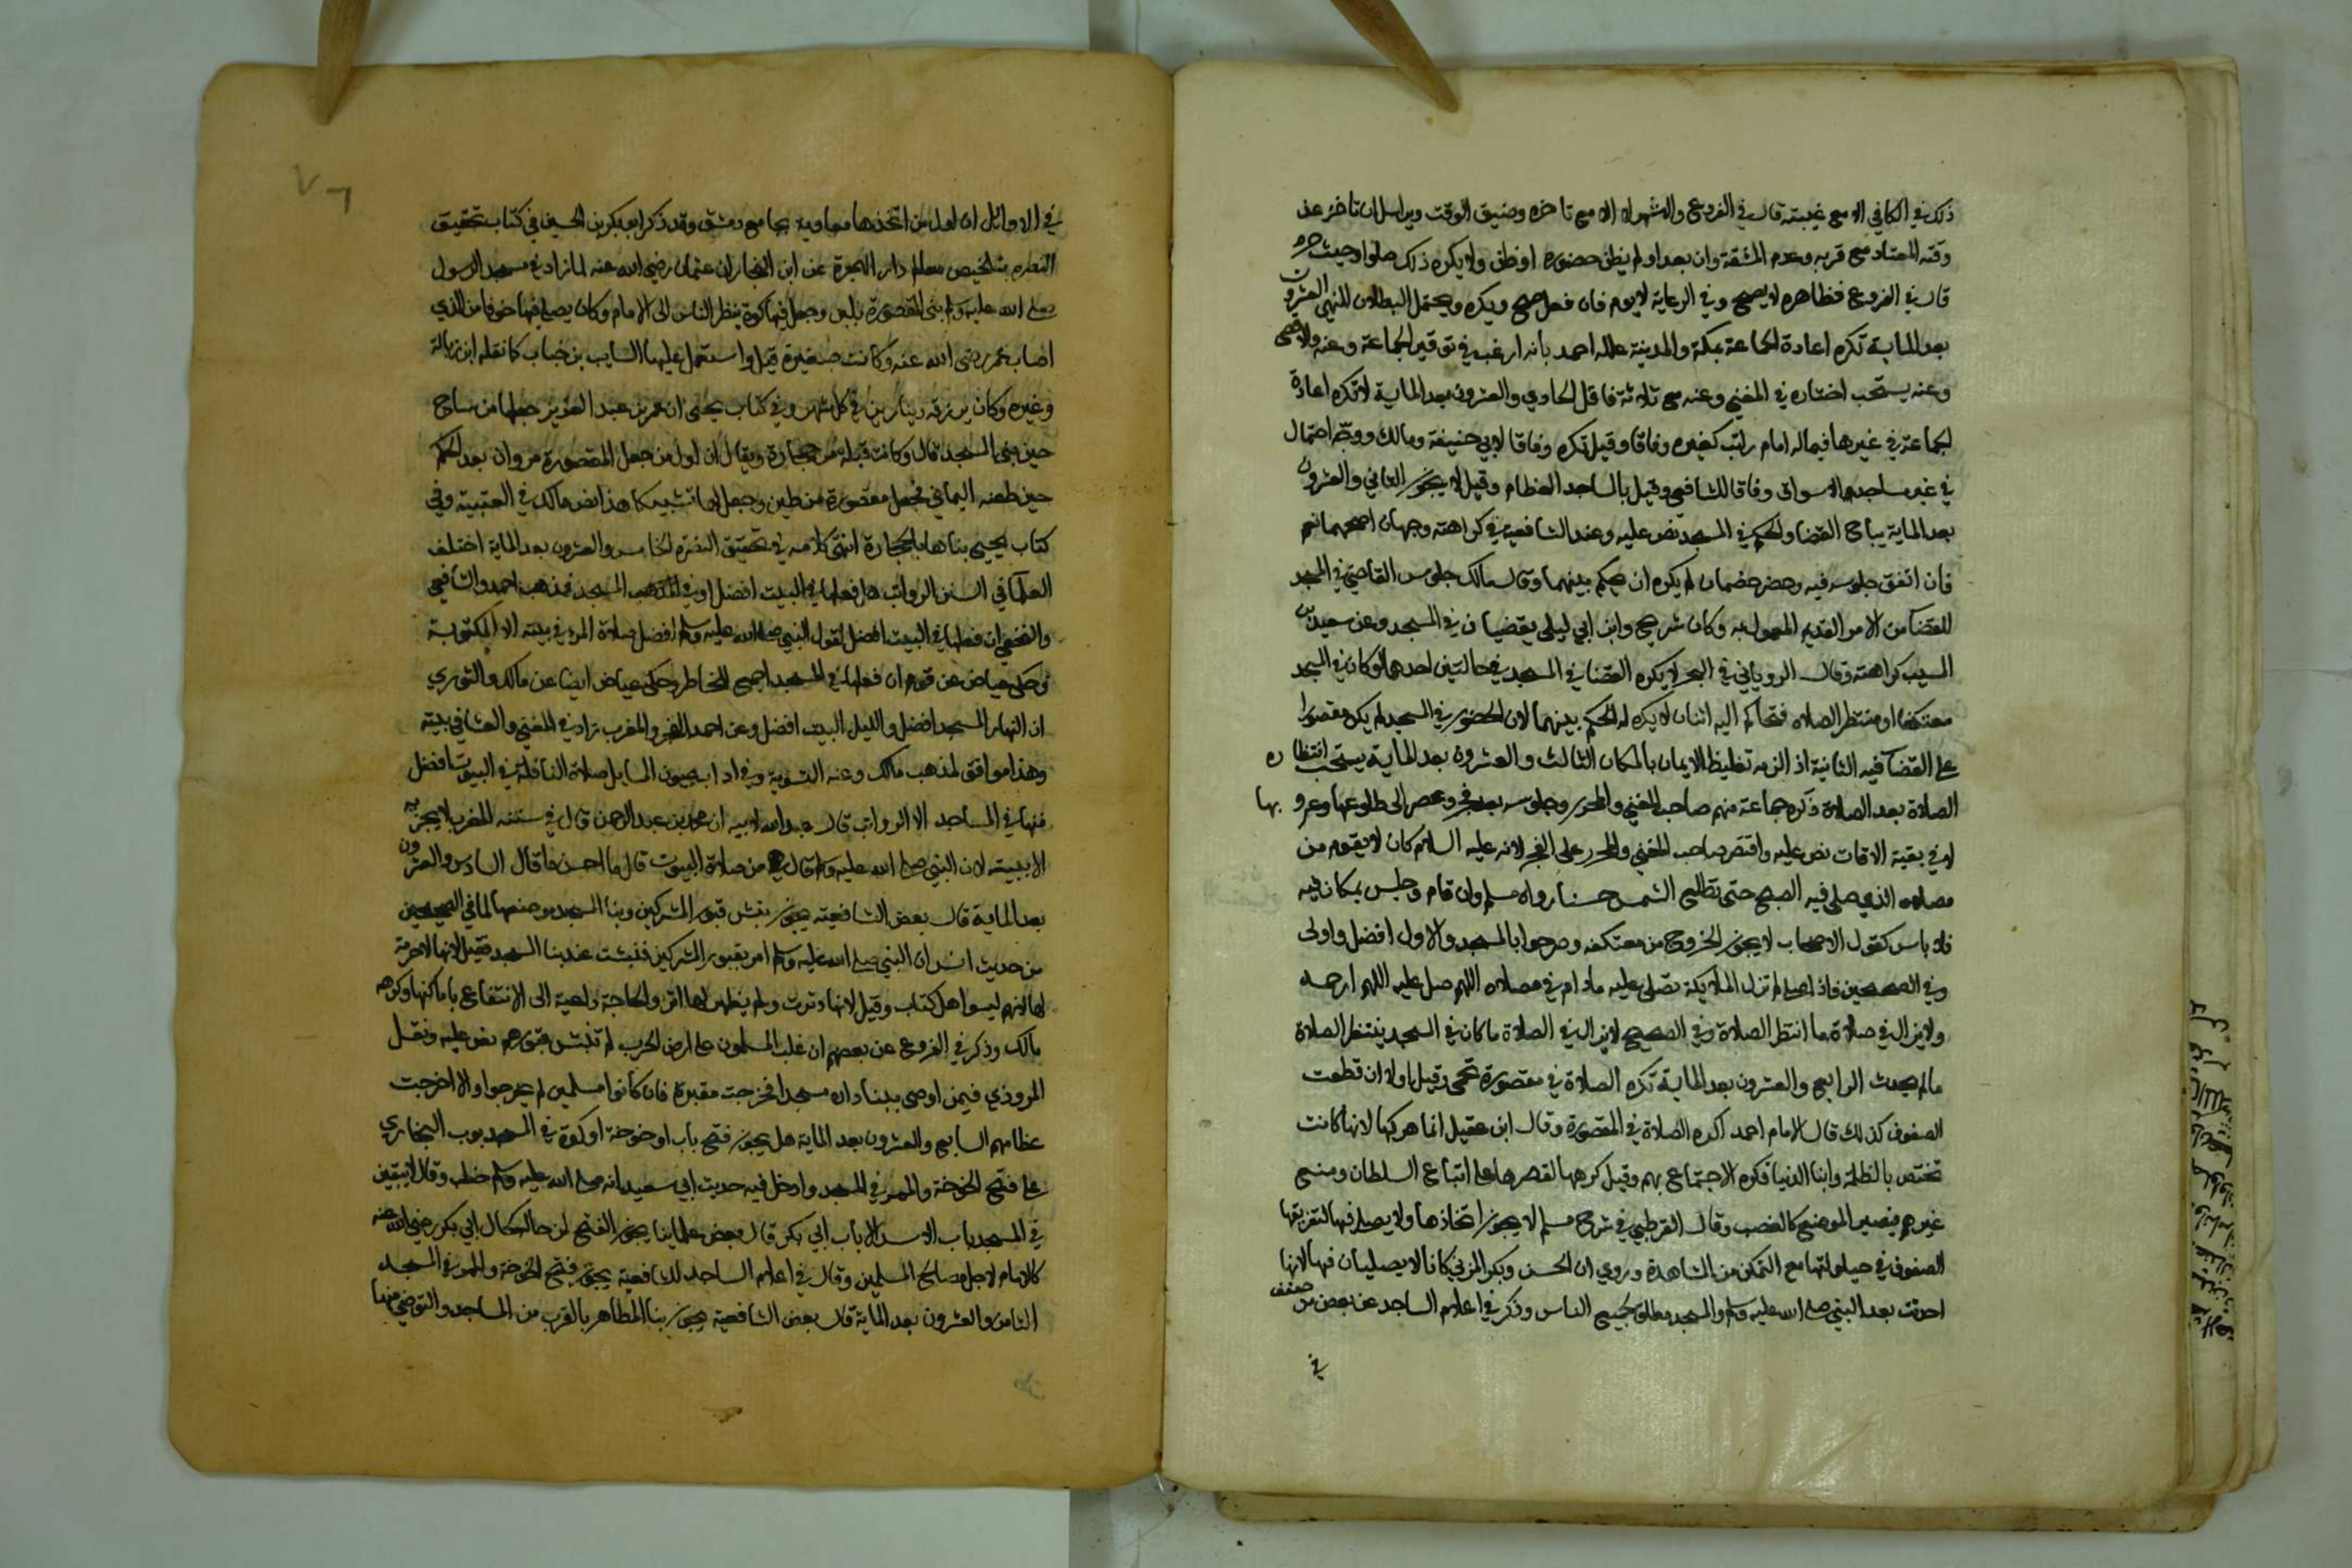 ذلك في الكافي الا مع غيبته قال في الفروع والاشهر لا الا مع تاخره وضيق الوقت ويراسل ان تاخر عن
وقته المعتاد مع قربه وعدم المشقة وان بعد او لم يظن حضوره او ظن ولا يكره ذلك صلوا وحيث حرم
قال في الفروع فظاهره لا يصح وفي الرعاية لا يوم فان فعل صح ويكره ويحتمل البطلان للنهي العشرون
بعد الماية تكره اعادة الجماعة بمكة والمدينة علله احمد بانه ارغب في توقير الجماعة وعنه
وعنه يستحب اختاره في المغني وعنه مع ثلاثة فاقل الحادي والعشرون بعد الماية لا تكره اعادة
الجماعة في غيرها فيما له امام راتب كغيره وفاقا وقيل تكره وفاقا لابي حنيفة ومالك ووجه احتمال
في غير مساجد الاسواق وفاقا للشافعي وقيل بالمساجد العظام وقيل لا يجوز الثاني والعشرون
بعد الماية يباح القضا والحكم في المسجد نص عليه وعند الشافعية في كراهته وجهان اصحهما نعم
فان اتفق جلوسه فيه وحضر خصمان لم يكره ان يحكم بينهما وقال مالك جلوس القاضي في المسجد
للقضا من الامر القديم المعمول به وكان شريح وابن ابي ليلى يقضيان في المسجد وعن سعيد بن
المسيب كراهته وقال الروياني في البحر لا يكره القضا في المسجد في حالتين احدهما لو كان في المسجد
معتكفا او منتظر الصلاه فتحاكم اليه اثنان لا يكره له الحكم بينهما لان الحضور في المسجد لم يكن مقصورا
على القضا فيه الثانية اذ الزمه تغليظ الايمان بالمكان الثالث والعشرون بعد الماية يستحب انتظاره
الصلاة بعد الصلاة ذكره جماعة منهم صاحب المغني والمحرر وجلوسه بعد فجر وعصر الى طلوعها وغروبها
لا في بقية الاوقات نص عليه واقتصر صاحب المغني والمحرر على الفجر لانه عليه السلام كان لا يقوم من
مصلاه الذي صلى فيه الصبح حتى تطلع الشمس حسنا رواه مسلم وان قام وجلس بمكان فيه
فلا باس كقول الاصحاب لا يجوز الخروج من معتكفه وصرحوا بالمسجد والاول افضل واولى
وفي الصحيحين فاذا صلى لم تزل الملايكة تصلي عليه مادام في مصلاه اللهم صل عليه اللهم ارحمه
ولا يزال في صلاة ما انتظر الصلاة وفي الصحيح لا يزال في الصلاة ما كان في المسجد ينتظر الصلاة
ما لم يحدث الرابع والعشرون بعد الماية تكره الصلاة في مقصورة تحمى وقيل اولا ان قطعت
الصفوف كذلك قال الامام احمد اكره الصلاة في المقصورة وقال ابن عقيل انما كرهها لانها كانت
تختص بالظلمة وابنا الدنيا فكره الاجتماع بهم وقيل كرهها لقصرها على اتباع السلطان ومنع
غيرهم فيصير الموضع كالغصب وقال القرطبي في شرح مسلم لا يجوز اتخاذها ولا يصلى فيها لتفريقها
الصفوف في حيلولتها مع التمكن من المشاهدة وروي ان الحسن وبكر المزني كانا لا يصليان فيها لانها
احدثت بعد النبي صلى الله عليه وسلم والمسجد مطلق لجميع الناس وذكر في اعلام الساجد عن بعض من صنف
في
٧٦
في الاوائل ان اول من اتخذها معاوية بجامع دمشق وقد ذكر ابو بكر بن الحسين في كتاب تحقيق
النصره بتلخيص معالم دار الهجرة عن ابن النجار ان عثمان رضي الله عنه لما زاد في مسجد الرسول
صلى الله عليه وسلم بنى المقصورة بلبن وجعل فيها كوة ينظر الناس الى الامام وكان يصلي فيها خوفا من الذي
اصاب عمر رضي الله عنه وكانت صغيرة قيل واستعمل عليها السايب بن خباب كما نقله ابن زبالة
وغيره وكان يرزقه دينارين في كل شهر وفي كتاب يحيى ان عمر بن عبد العزيز جعلها من ساج
حين بنى المسجد قال وكانت قبله من حجارة ويقال ان اول من جعل المقصورة مروان بعد الحكم
حين طعنه اليماني فجعل مقصورة من طين وجعل لها تشبيكا هذا نص مالك في العتبية وفي
كتاب يحيى بناها بالحجارة انتهى كلامه في تحقيق النصرة الخامس والعشرون بعد الماية اختلف
العلما في السنن الرواتب هل فعلها في البيت افضل او في المسجد فمذهب احمد والشافعي
والنخعي ان فعلها في البيت افضل لقول النبي صلى الله عليه وسلم افضل صلاة المرء في بيته الا المكتوبة
وحكى عياض عن قوم ان فعلها في المسجد اجمع للخاطر وحكى عياض ايضا عن مالك والثوري
ان النهار المسجد افضل والليل البيت افضل وعن احمد الفجر والمغرب زاد في المغني والعشا في بيته
وهذا موافق لمذهب مالك وعنه التسوية وفي اداب عيون المسايل صلاة النافلة في البيوت افضل
منها في المساجد الا الرواتب قال عبد الله لابيه ان محمد بن عبد الرحمن قال في سنته المغرب لا يجزيه
الا ببيته لان النبي صلى الله عليه وسلم قال هي من صلاة البيوت قال ما احسن ما قال السادس والعشرون
بعد الماية قال بعض الشافعية يجوز نبش قبور المشركين وبنا المسجد موضعها لما في الصحيحين
من حديث انس ان النبي صلى الله عليه وسلم امر بقبور المشركين فنبشت عند بنا المسجد فقيل لانها لا حرمة
لها لانهم ليسوا اهل كتاب وقيل لانها دثرت ولم يظهر لها اثر والحاجة داعية الى الانتفاع باماكنها وكرهه
مالك وذكر في الفروع عن بعضهم ان غلب المسلمون على ارض الحرب لم تنبش قبورهم نص عليه ونقل
المروذي فيمن اوصى ببنا داره مسجدا فخرجت مقبرة فان كانوا مسلمين لم يخرجوا والا اخرجت
عظامهم السابع والعشرون بعد الماية هل يجوز فتح باب او خوخة او كوة في المسجد بوب البخاري
على فتح الخوخة والممر في المسجد وادخل فيه حديث ابي سعيد انه صلى الله عليه وسلم خطب وقال لا يبقين
في المسجد باب الا سد الا باب ابي بكر قال بعض علماينا يجوز الفتح لمن حاله كحال ابي بكر رضي الله عنه
كالامام لاجل مصالح المسلمين وقال في اعلام الساجد للشافعية يجوز فتح الخوخة والممر في المسجد
الثامن والعشرون بعد الماية قال بعض الشافعية يجوز بنا المطاهر بالقرب من المساجد والتوضي منها